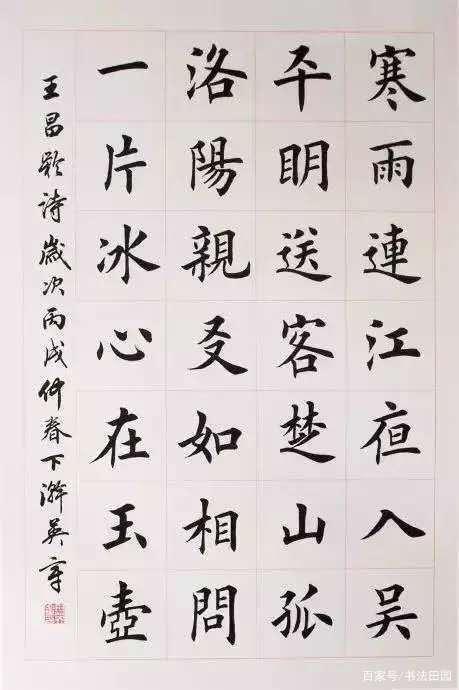 寒雨連江夜入吴
平明送客楚山孤
洛陽親友如相問
一片冰心在玉壺
王昌齡詩歲次丙戌仲春下澣英
百家号/书法田园